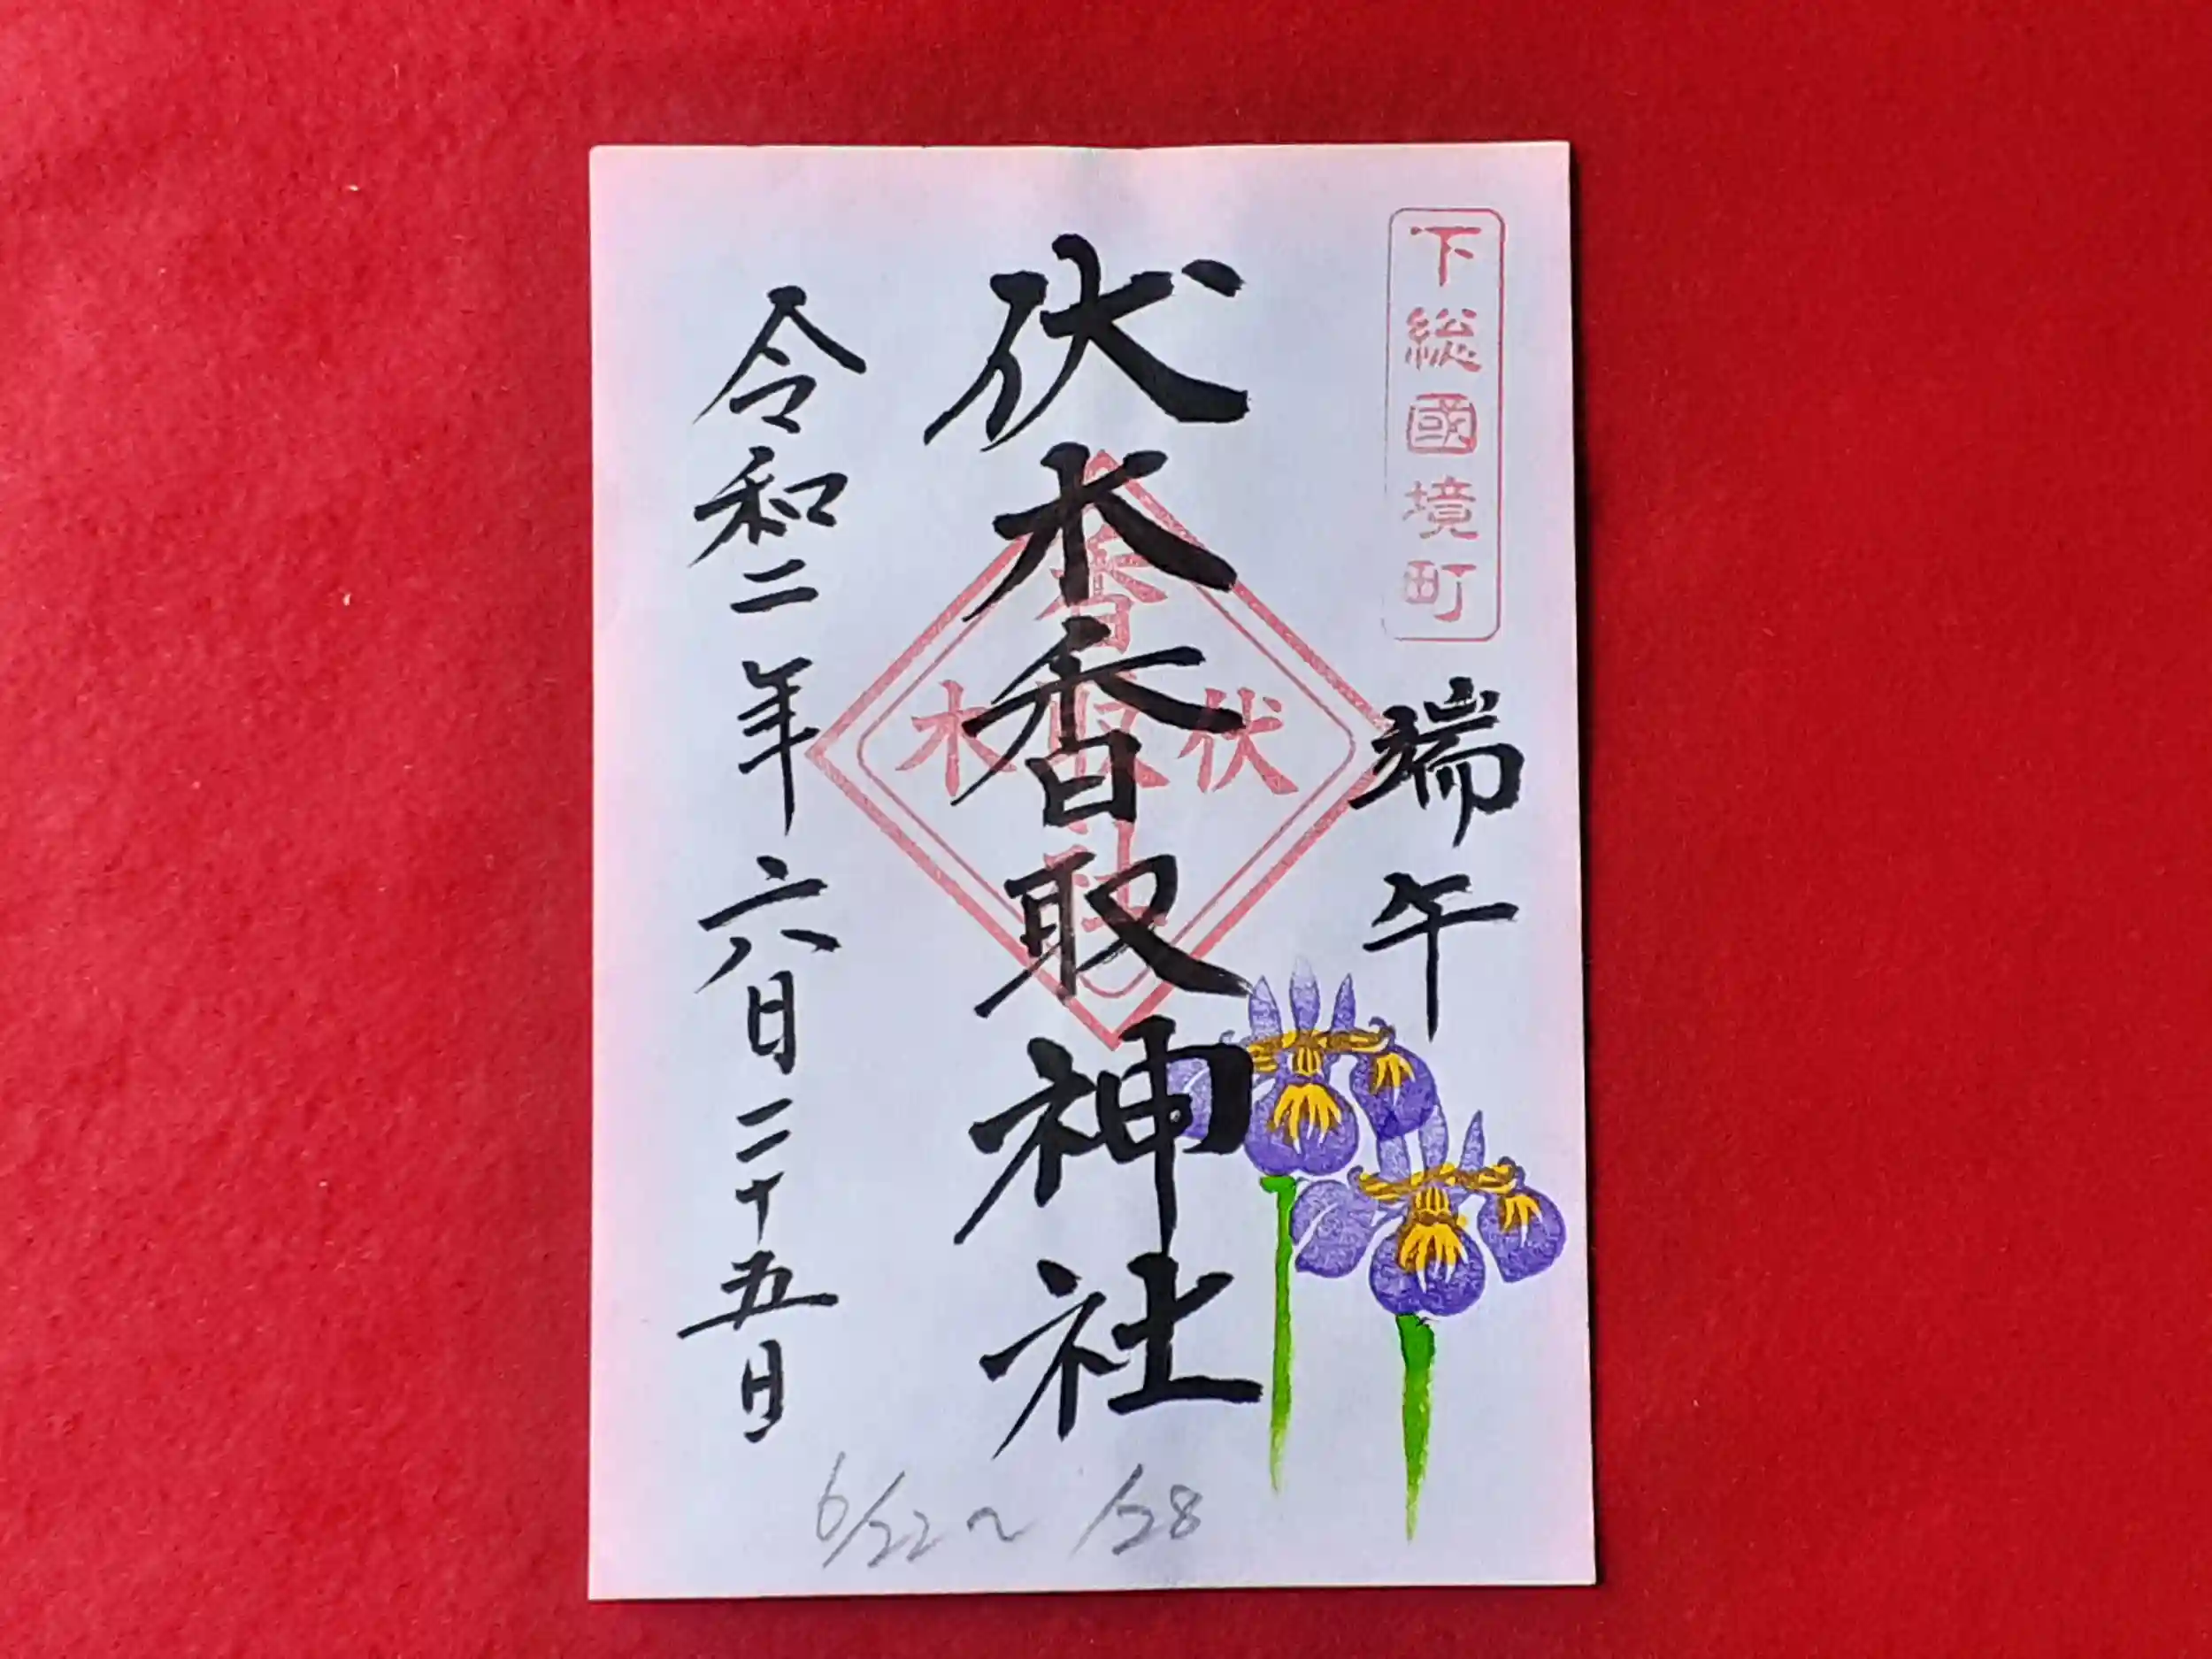 下総國境町
端午
伏木香取神社
香取社
伏木
令和二年六月二十五日
6/22〜/28